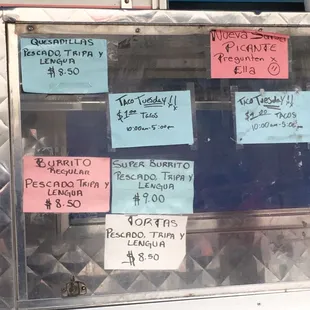 Quesadillas
Pescado, Tripa y
Lengua
$8.50
Nueva Salsa
Picante
Pregunten x
Ella
Taco Tuesday!!
$1.00 Tacos
10:00am-5:00pm
Taco Tuesday!!
Tacos
10:00am-5:00
Burrito
Regular
Pescado, Tripa y
Lengua
$8.50
Super Burrito
Pescado, Tripa y
Lengua
$9.00
Tortas
Pescado, Tripa y
Lengua
$8.50